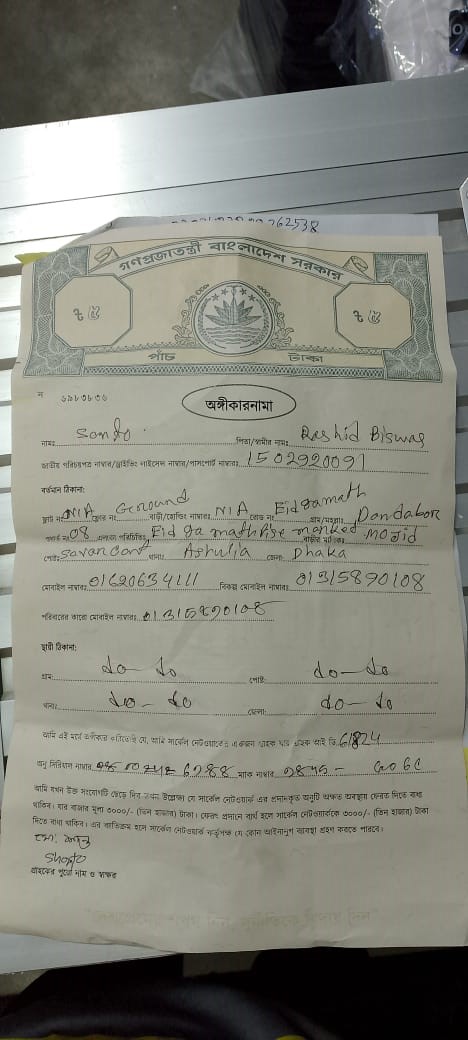 762538
গণপ্রজাতন্ত্রী বাংলাদেশ সরকার
৳ ৫ ৳ ৫
পাঁচ টাকা
নং ৬৯৮৩৮৩৬
অঙ্গীকারনামা
নামঃ পিতা/স্বামীর নামঃ Rashid Biswas
জাতীয় পরিচয়পত্র নাম্বার/ড্রাইভিং লাইসেন্স নাম্বার/পাসপোর্ট নাম্বারঃ 1502920091
বর্তমান ঠিকানা:
ফ্লাট নং N/A ফ্লোর নং Ground বাড়ী/হোল্ডিং নাম্বারঃ N/A রোড নং Eidgamath গ্রাম/মহল্লাঃ Dendabor
ওয়ার্ড নং 08 এলাকা পরিচিতিঃ Eid ga math বাড়ীর মালিকঃ Mojid
পোষ্টঃ Savar cant থানাঃ Ashulia জেলাঃ Dhaka
মোবাইল নাম্বারঃ 01620634111 বিকল্প মোবাইল নাম্বারঃ 01315890108
পরিবারের কারো মোবাইল নাম্বারঃ 01315890108
স্থায়ী ঠিকানা:
গ্রামঃ do - do পোষ্টঃ do - do
থানাঃ do - do জেলাঃ do - do
আমি এই মর্মে অঙ্গীকার করিতেছি যে, আমি সার্কেল নেটওয়ার্কের একজন গ্রাহক যার গ্রাহক আই ডি. 61824
অনু সিরিয়াল নাম্বার 6288 ম্যাক নাম্বার
আমি যখন উক্ত সংযোগটি ছেড়ে দিব তখন উল্লেখ্য যে সার্কেল নেটওয়ার্ক এর প্রদানকৃত অনুটি অক্ষত অবস্থায় ফেরত দিতে বাধ্য
থাকিব। যার বাজার মূল্য ৩০০০/- (তিন হাজার) টাকা। ফেরৎ প্রদানে ব্যর্থ হলে সার্কেল নেটওয়ার্ককে ৩০০০/- (তিন হাজার) টাকা
দিতে বাধ্য থাকিব। এর ব্যতিক্রম হলে সার্কেল নেটওয়ার্ক কর্তৃপক্ষ যে কোন আইনানুগ ব্যবস্থা গ্রহণ করতে পারবে।
মো:
Shanto
গ্রাহকের পুরো নাম ও স্বাক্ষর